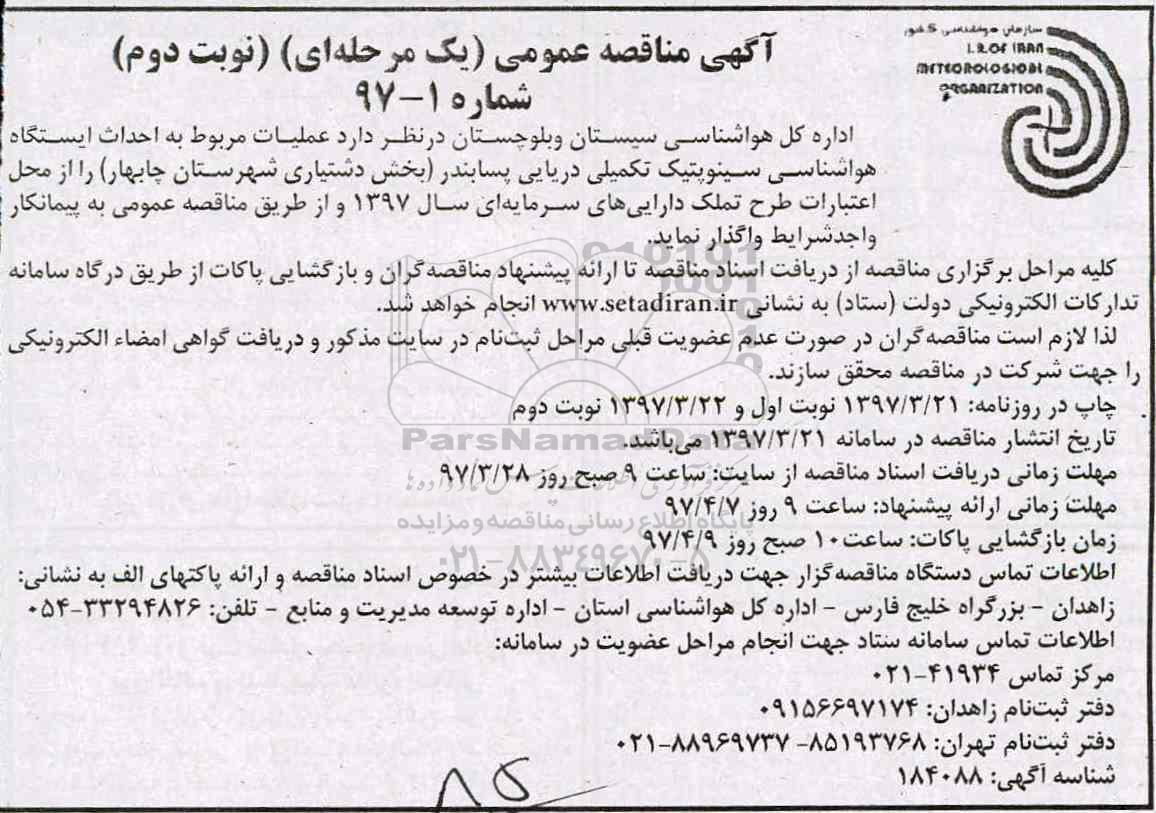 سازمان هواشناسی کشور
I.R.OF IRAN
METEOROLOGICAL
ORGANIZATION
آگهی مناقصه عمومی (یک مرحله‌ای) (نوبت دوم)
شماره ۱-۹۷
اداره کل هواشناسی سیستان وبلوچستان درنظر دارد عملیات مربوط به احداث ایستگاه
هواشناسی سینوپتیک تکمیلی دریایی پسابندر (بخش دشتیاری شهرستان چابهار) را از محل
اعتبارات طرح تملک دارایی‌های سرمایه‌ای سال ۱۳۹۷ و از طریق مناقصه عمومی به پیمانکار
واجدشرایط واگذار نماید.
کلیه مراحل برگزاری مناقصه از دریافت اسناد مناقصه تا ارائه پیشنهاد مناقصه‌گران و بازگشایی پاکات از طریق درگاه سامانه
تدارکات الکترونیکی دولت (ستاد) به نشانی www.setadiran.ir انجام خواهد شد.
لذا لازم است مناقصه‌گران در صورت عدم عضویت قبلی مراحل ثبت‌نام در سایت مذکور و دریافت گواهی امضاء الکترونیکی
را جهت شرکت در مناقصه محقق سازند.
چاپ در روزنامه: ۱۳۹۷/۳/۲۱ نوبت اول و ۱۳۹۷/۳/۲۲ نوبت دوم
تاریخ انتشار مناقصه در سامانه ۱۳۹۷/۳/۲۱ می‌باشد.
مهلت زمانی دریافت اسناد مناقصه از سایت: ساعت ۹ صبح روز ۹۷/۳/۲۸
مهلت زمانی ارائه پیشنهاد: ساعت ۹ روز ۹۷/۴/۷
زمان بازگشایی پاکات: ساعت۱۰ صبح روز ۹۷/۴/۹
اطلاعات تماس دستگاه مناقصه‌گزار جهت دریافت اطلاعات بیشتر در خصوص اسناد مناقصه و ارائه پاکتهای الف به نشانی:
زاهدان - بزرگراه خلیج فارس - اداره کل هواشناسی استان - اداره توسعه مدیریت و منابع - تلفن: ۳۳۲۹۴۸۲۶-۰۵۴
اطلاعات تماس سامانه ستاد جهت انجام مراحل عضویت در سامانه:
مرکز تماس ۴۱۹۳۴-۰۲۱
دفتر ثبت‌نام زاهدان: ۰۹۱۵۶۶۹۷۱۷۴
دفتر ثبت‌نام تهران: ۸۵۱۹۳۷۶۸- ۸۸۹۶۹۷۳۷-۰۲۱
شناسه آگهی: ۱۸۴۰۸۸
ParsNamadData
پایگاه اطلاع رسانی مناقصه و مزایده
۰۲۱-۸۸۳۴۹۶۷۰-۵